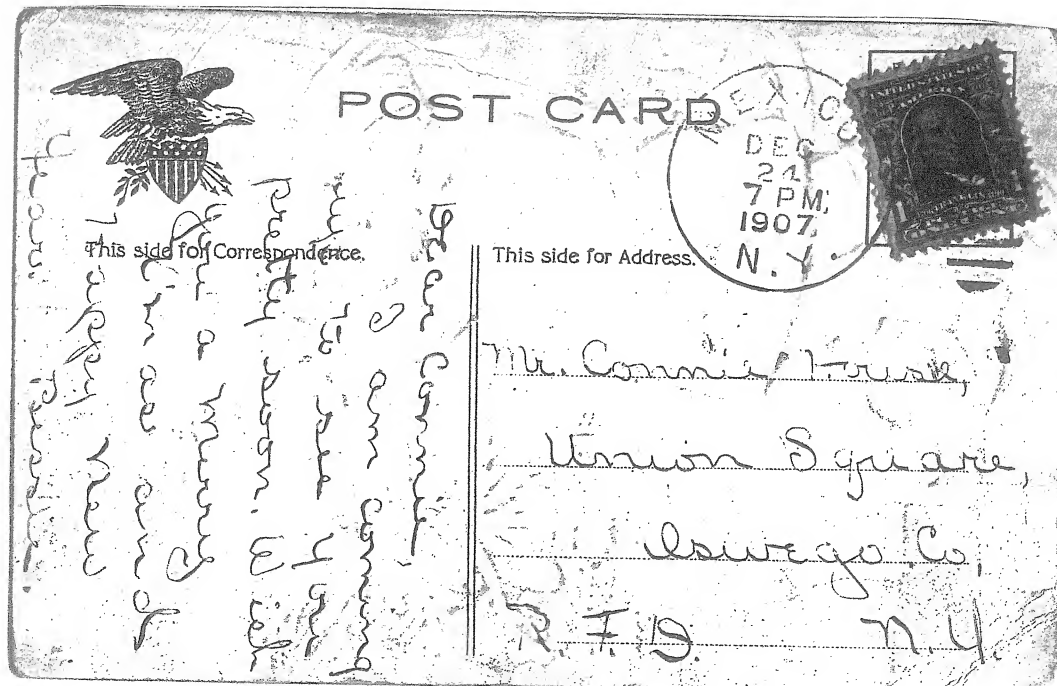 POST CARD
MEXICO
DEC
24
7 PM
1907
N.Y.
UNITED STATES
AMERICA
1 1
This side for Correspondence.
This side for Address.
Dear Connie,
I am coming
up to see you
pretty soon. Wish
you a Merry
X'mas and
Happy New
Year. Bessie.
Mr. Connie
Union Square,
Oswego Co,
R.F.D. N.Y.